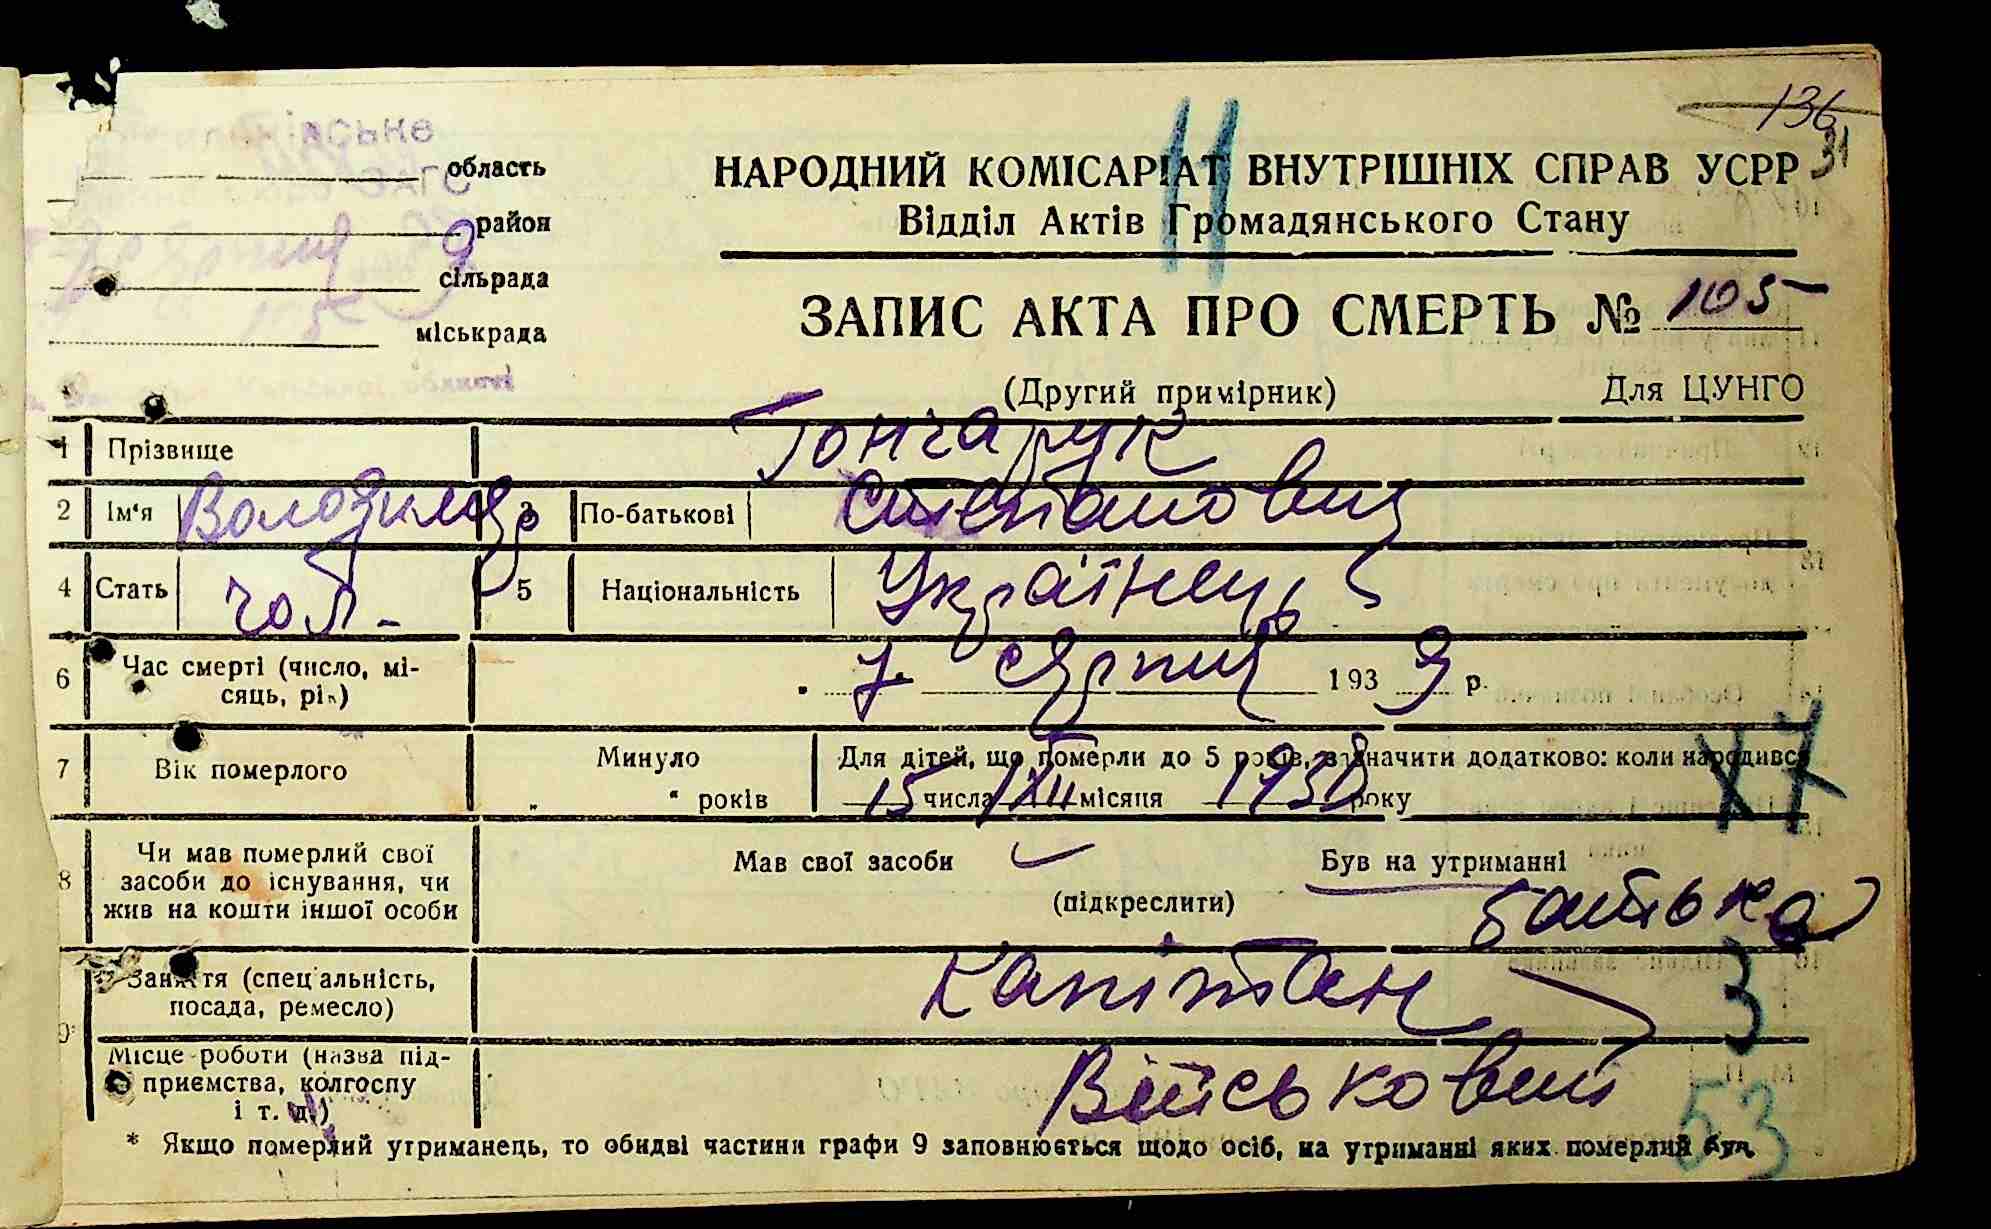 136
31
область
район
сільрада
міськрада
Київської області
11
НАРОДНИЙ КОМІСАРІАТ ВНУТРІШНІХ СПРАВ УСРР
Відділ Актів Громадянського Стану
ЗАПИС АКТА ПРО СМЕРТЬ № 105
(Другий примірник) Для ЦУНГО
1 Прізвище Гончарук
2 Ім'я Володимир 3 По-батькові Степанович
4 Стать чол. 5 Національність Українець
6 Час смерті (число, мі-
сяць, рік) 7 серпня 1939 р.
7 Вік померлого Минуло " " років Для дітей, що померли до 5 років, зазначити додатково: коли народивс
15 числа місяця 1938 року
8 Чи мав померлий свої
засоби до існування, чи
жив на кошти іншої особи
Мав свої засоби Був на утриманні
(підкреслити) батька
9* Заняття (спеціальність,
посада, ремесло) Капітан 3
Місце роботи (назва під-
приємства, колгоспу
і т. д.) Військовий
53
* Якщо померлий утриманець, то обидві частини графи 9 заповнюється щодо осіб, на утриманні яких померлий був